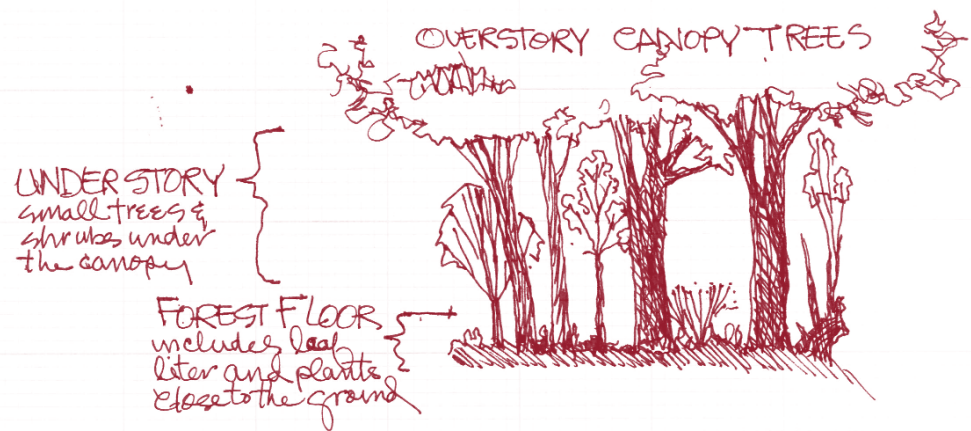 OVERSTORY CANOPY TREES
UNDERSTORY
small trees &
shrubs under
the canopy
FOREST FLOOR
includes leaf
liter and plants
close to the ground